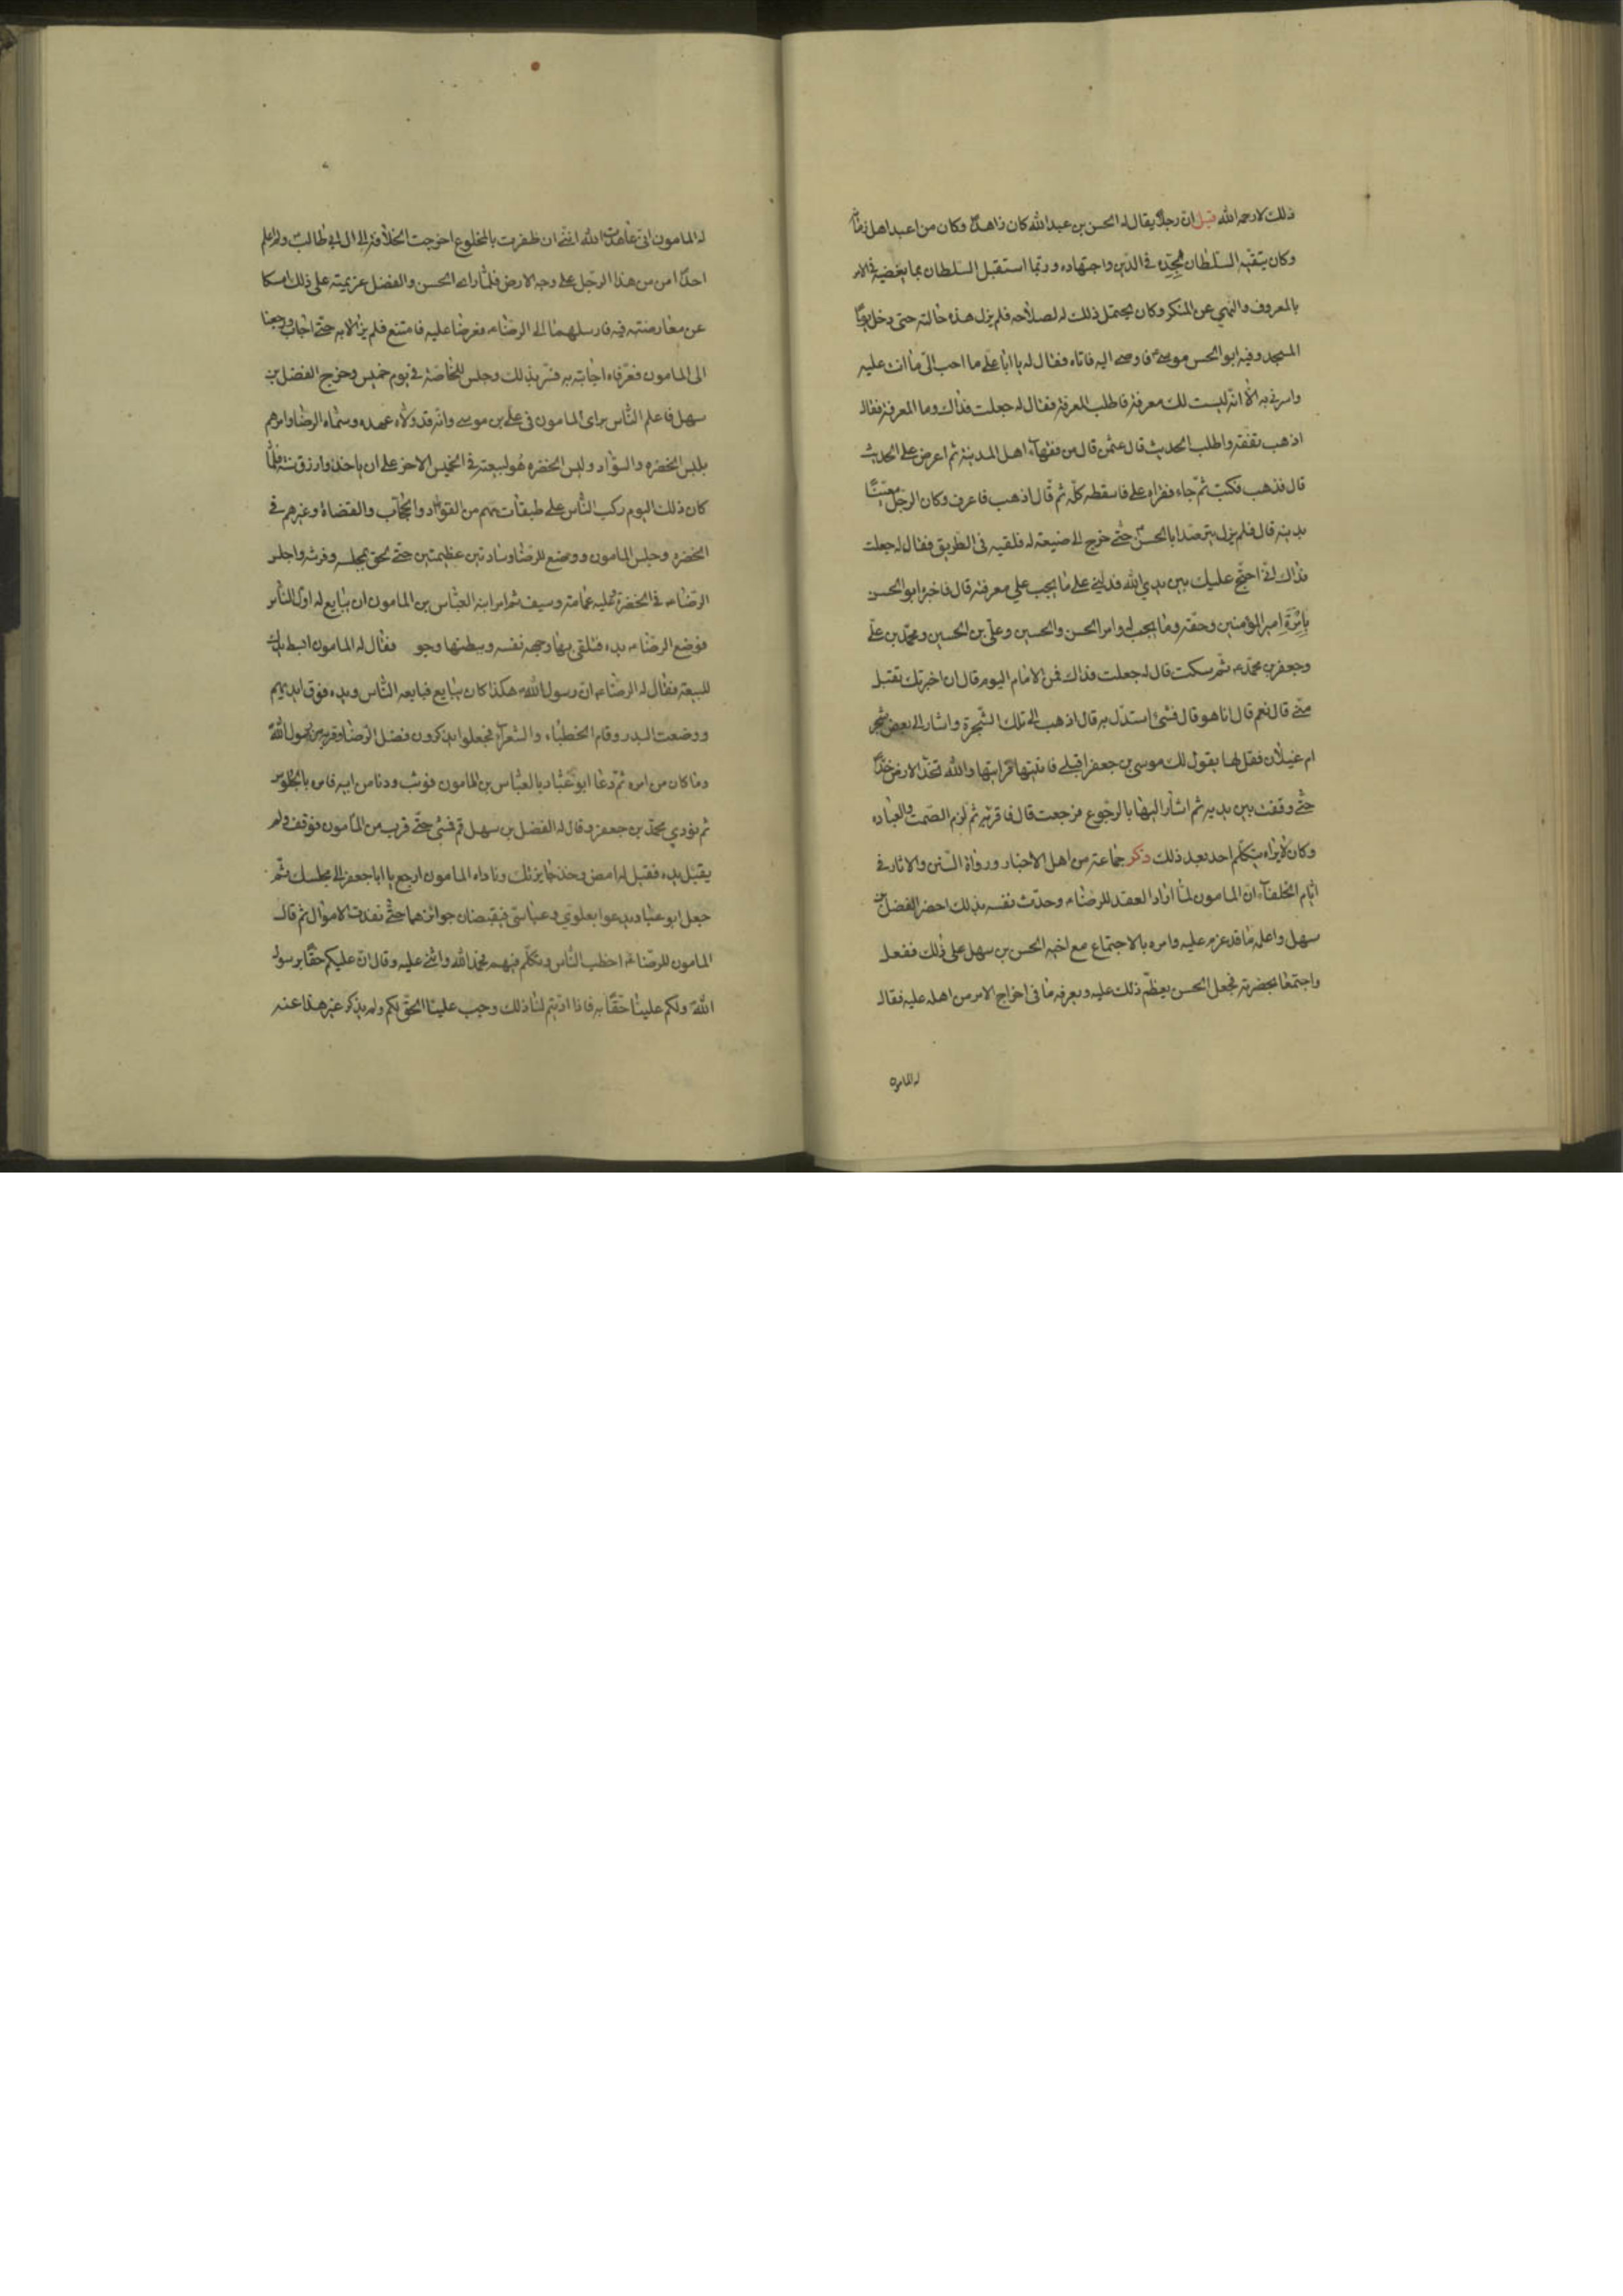 ذلك لا رحمه الله قيل ان رجلاً يقال له الحسن بن عبد الله كان زاهداً وكان من اعبد اهل زمانه
وكان يتقيه السلطان لجده في الدين واجتهاده وربما استقبل السلطان بما يغضبه في الامر
بالمعروف والنهي عن المنكر وكان يحتمل ذلك له لصلاحه فلم يزل هذه حالته حتى دخل يوماً
المسجد وفيه ابو الحسن موسى فاومى اليه فاتاه فقال له يا ابا علي ما احب الي ما انت عليه
واسرني به الا انه ليست لك معرفة فاطلب المعرفة فقال له جعلت فداك وما المعرفة فقال
اذهب تفقه واطلب الحديث قال عمن قال من فقهاء اهل المدينة ثم اعرض علي الحديث
قال فذهب فكتب ثم جاء فقراه علي فاسقطه كله ثم قال اذهب فاعرف وكان الرجل معنياً
بدينه قال فلم يزل يترصد ابا الحسن حتى خرج الى ضيعة له فلقيه في الطريق فقال له جعلت
فداك اني احتج عليك بين يدي الله فدلني على ما يجب علي معرفته قال فاخبره ابو الحسن
بامرة امير المؤمنين وحقه وما يجب له وامر الحسن والحسين وعلي بن الحسين ومحمد بن علي
وجعفر بن محمد ثم سكت قال له جعلت فداك فمن الامام اليوم قال ان اخبرتك تقبل
مني قال نعم قال انا هو قال فشئ استدل به قال اذهب الى تلك الشجرة واشار الى بعض شجر
ام غيلان فقل لها يقول لك موسى بن جعفر اقبلي فاتيتها قرابتها والله تخد الارض خداً
حتى وقفت بين يديه ثم اشار اليها بالرجوع فرجعت قال فاقر به ثم لزم الصمت والعباده
وكان لا يراه يتكلم احد بعد ذلك وذكر جماعة من اهل الاخبار ورواة السنن والاثار في
ايام الخلفاء ان المامون لما اراد العقد للرضا وحدث نفسه بذلك احضر الفضل بن
سهل واعلمه ما قد عزم عليه وامره بالاجتماع مع اخيه الحسن بن سهل على ذلك ففعل
واجتمعا بحضرته فجعل الحسن يعظم ذلك عليه ويعرفه ما في اخراج الامر من اهله عليه فقال
له المامون
له المامون اني عاهدت الله انني ان ظفرت بالمخلوع اخرجت الخلافة الى ال ابي طالب ولم اعلم
احداً امن من هذا الرجل على وجه الارض فلما راى الحسن والفضل عزيمته على ذلك امسكا
عن معارضته فيه فارسلهما الى الرضا فعرضا عليه فامتنع فلم يزالا به حتى اجاب ورجعا
الى المامون فعرفاه اجابته به فسر بذلك وجلس للخاصة في يوم خميس وخرج الفضل بن
سهل فاعلم الناس براى المامون في علي بن موسى وانه قد ولاه عهده وسماه الرضا وامرهم
بلبس الخضره والسواد ولبس الخضره هو لبيعته في الخميس الاخر على ان ياخذوا رزق سنة فلما
كان ذلك اليوم ركب الناس على طبقاتهم من القواد والحجاب والقضاة وغيرهم في
الخضره وجلس المامون ووضع للرضا وسادتين عظيمتين حتى لحق بمجلسه وفرشه واجلس
الرضا في الخضرة عليه عمامة وسيف ثم امر ابنه العباس بن المامون ان يبايع له اول الناس
فوضع الرضا يده فتلقى بها وجهه نفسه وببطنها وجو فقال له المامون ابسط يدك
للبيعة فقال له الرضا ان رسول الله هكذا كان يبايع فبايعه الناس ويده فوق ايديهم
ووضعت البدر وقام الخطباء والشعراء فجعلوا يذكرون فضل الرضا وقربه من رسول الله
وما كان من امره ثم دعا ابو عباد بالعباس بن المامون فوثب ودنا من ابيه فامره بالجلوس
ثم نودي محمد بن جعفر وقال له الفضل بن سهل قم فمشى حتى قرب من المامون فوقف ولم
يقبل يده فقيل له امض وخذ جايزتك وناداه المامون ارجع يا ابا جعفر الى مجلسك ثم
جعل ابو عباد يدعوا بعلوي وعباسي فيقبضان جوائزهما حتى نفدت الاموال ثم قال
المامون للرضا اخطب الناس وتكلم فيهم فحمد الله واثنى عليه وقال ان عليكم حقاً برسول
الله ولكم علينا حقاً به فاذا اديتم لنا ذلك وجب علينا الحق لكم ولم يذكر غير هذا عنه